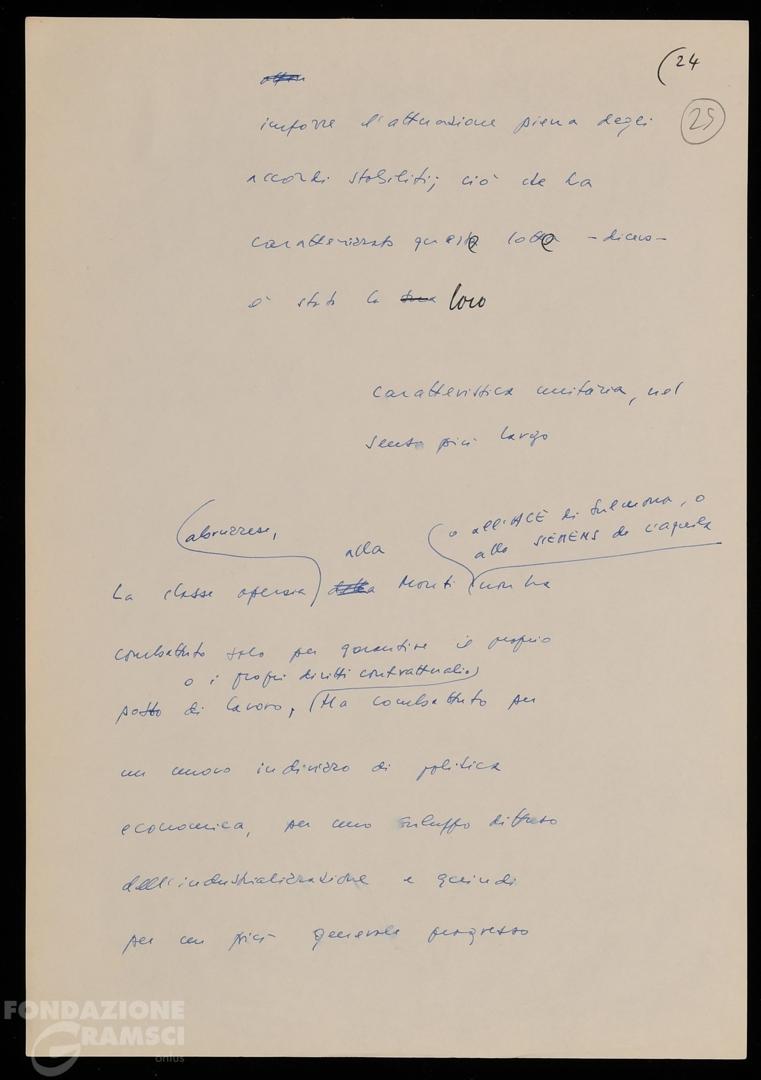 (24
25
imporre l'attuazione piena degli
accordi stabiliti; ciò che ha
caratterizzato queste lotte - dicevo -
è stata la loro
caratteristica unitaria, nel
senso più largo
(abruzzese,
o all'ACE di Sulmona, o
alla SIEMENS de L'Aquila
alla
La classe operaia Monti non ha
combattuto solo per garantire il proprio
o i propri diritti contrattuali.
posto di lavoro, Ha combattuto per
un nuovo indirizzo di politica
economica, per uno sviluppo diffuso
dell'industrializzazione e quindi
per un più generale progresso
FONDAZIONE
GRAMSCI
onlus